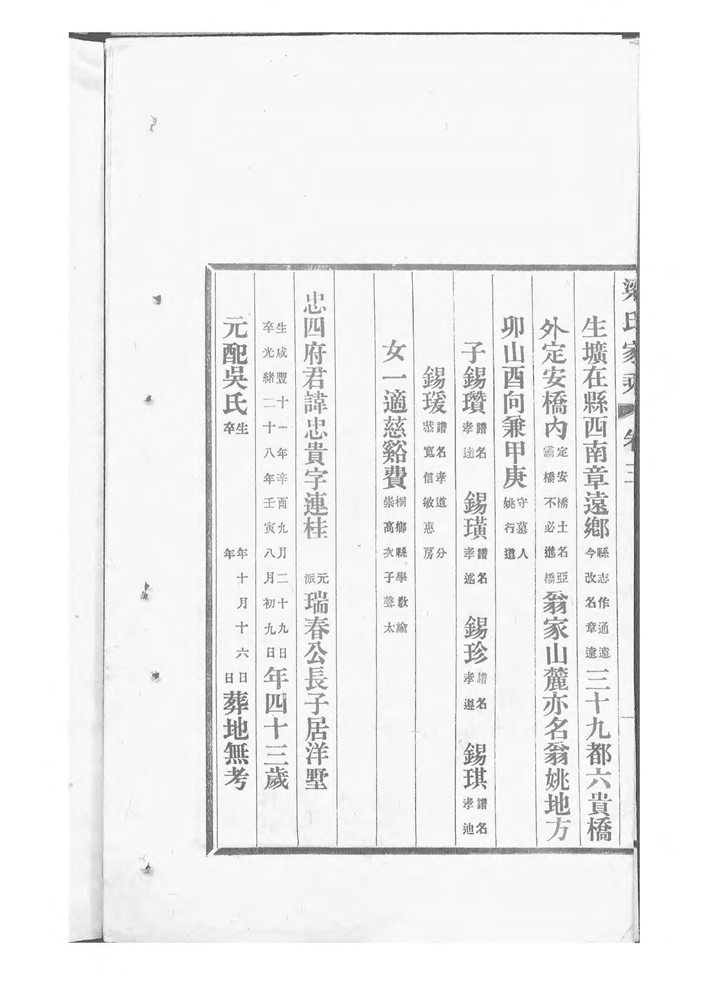 梁氏家乘 卷三
生壙在縣西南章遠鄉縣志作通遠今改名章遠三十九都六貴橋
外定安橋內定安橋土名亞霸橋不必進橋翁家山麓亦名翁姚地方
卯山酉向兼甲庚守墓人姚行道
子錫瓚譜名孝達 錫璜譜名孝遙 錫珍譜名孝遜 錫琪譜名孝迪
錫瑗譜名孝道分恭寬信敏惠房
女一適慈谿費桐鄉縣學教諭崇高次子聲太
忠四府君諱忠貴字連桂元派瑞春公長子居洋墅
生咸豐十一年辛酉九月二十九日卒光緒二十八年壬寅八月初九日年四十三歲
元配吳氏生 年十月十六日卒 年 日葬地無考